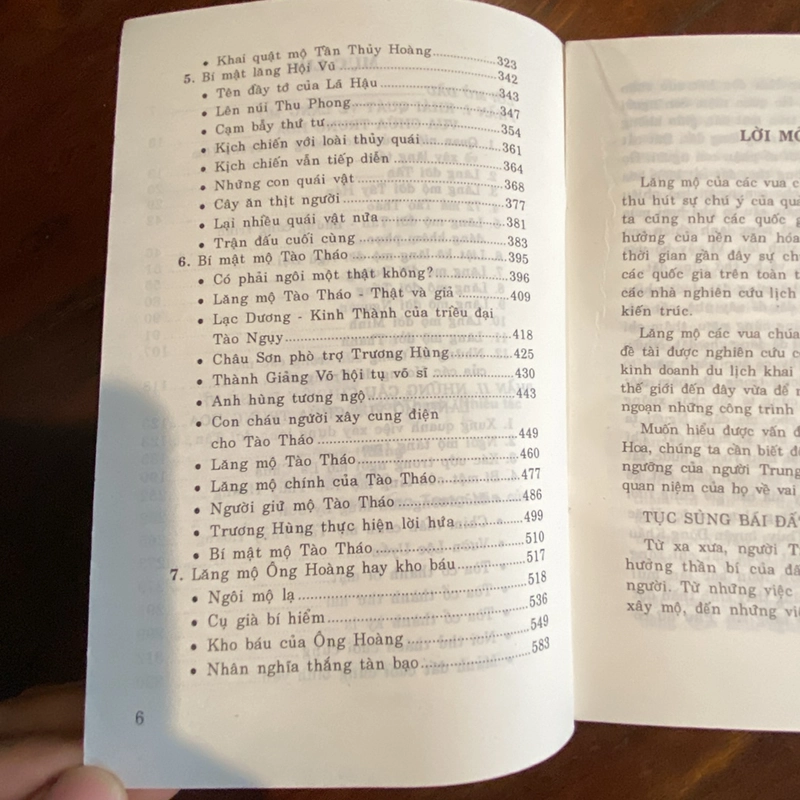 • Khai quật mộ Tần Thủy Hoàng 323
5. Bí mật lăng Hội Vũ 342
• Tên đầy tớ của Lã Hậu 343
• Lên núi Thu Phong 347
• Cạm bẫy thứ tư 354
• Kịch chiến với loài thủy quái 361
• Kịch chiến vẫn tiếp diễn 364
• Những con quái vật 368
• Cây ăn thịt người 377
• Lại nhiều quái vật nữa 381
• Trận đấu cuối cùng 383
6. Bí mật mộ Tào Tháo 395
• Có phải ngôi một thật không? 396
• Lăng mộ Tào Tháo - Thật và giả 409
• Lạc Dương - Kinh Thành của triều đại
Tào Ngụy 418
• Châu Sơn phò trợ Trương Hùng 425
• Thành Giảng Võ hội tụ võ sĩ 430
• Anh hùng tương ngộ 443
• Con cháu người xây cung điện
cho Tào Tháo 449
• Lăng mộ Tào Tháo 460
• Lăng mộ chính của Tào Tháo 477
• Người giữ mộ Tào Tháo 486
• Trương Hùng thực hiện lời hứa 499
• Bí mật mộ Tào Tháo 510
7. Lăng mộ Ông Hoàng hay kho báu 517
• Ngôi mộ lạ 518
• Cụ già bí hiểm 536
• Kho báu của Ông Hoàng 549
• Nhân nghĩa thắng tàn bạo 583
6
LỜI MỞ
Lăng mộ của các vua c
thu hút sự chú ý của quá
ta cũng như các quốc g
hưởng của nền văn hóa
thời gian gần đây sự ch
các quốc gia trên toàn t
các nhà nghiên cứu lịch
kiến trúc.
Lăng mộ các vua chúa
đề tài được nghiên cứu c
kinh doanh du lịch khai
thế giới đến đây vừa để
ngoạn những công trình
Muốn hiểu được vấn đ
Hoa, chúng ta cần biết đ
ngưỡng của người Trung
quan niệm của họ về vai
TỤC SÙNG BÁI ĐẤ
Từ xa xưa, người T
hưởng thần bí của đấ
người. Từ những việc
xây mộ, đến những việ